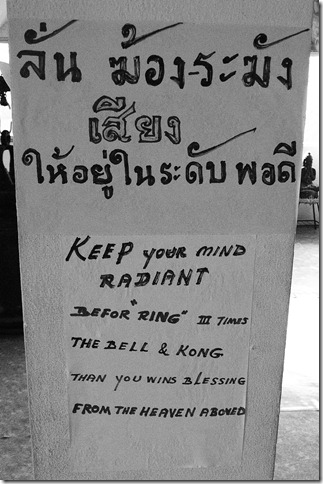 ลั่น ฆ้อง-ระฆัง
เสียง
ให้อยู่ในระดับ พอดี
KEEP YOUR MIND
RADIANT
BEFOR "RING" III TIMES
THE BELL & KONG
THAN YOU WINS BLESSING
FROM THE HEAVEN ABOVED